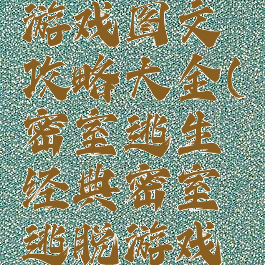 游戏图文
攻略大全(
密室逃生
经典密室
逃脱游戏